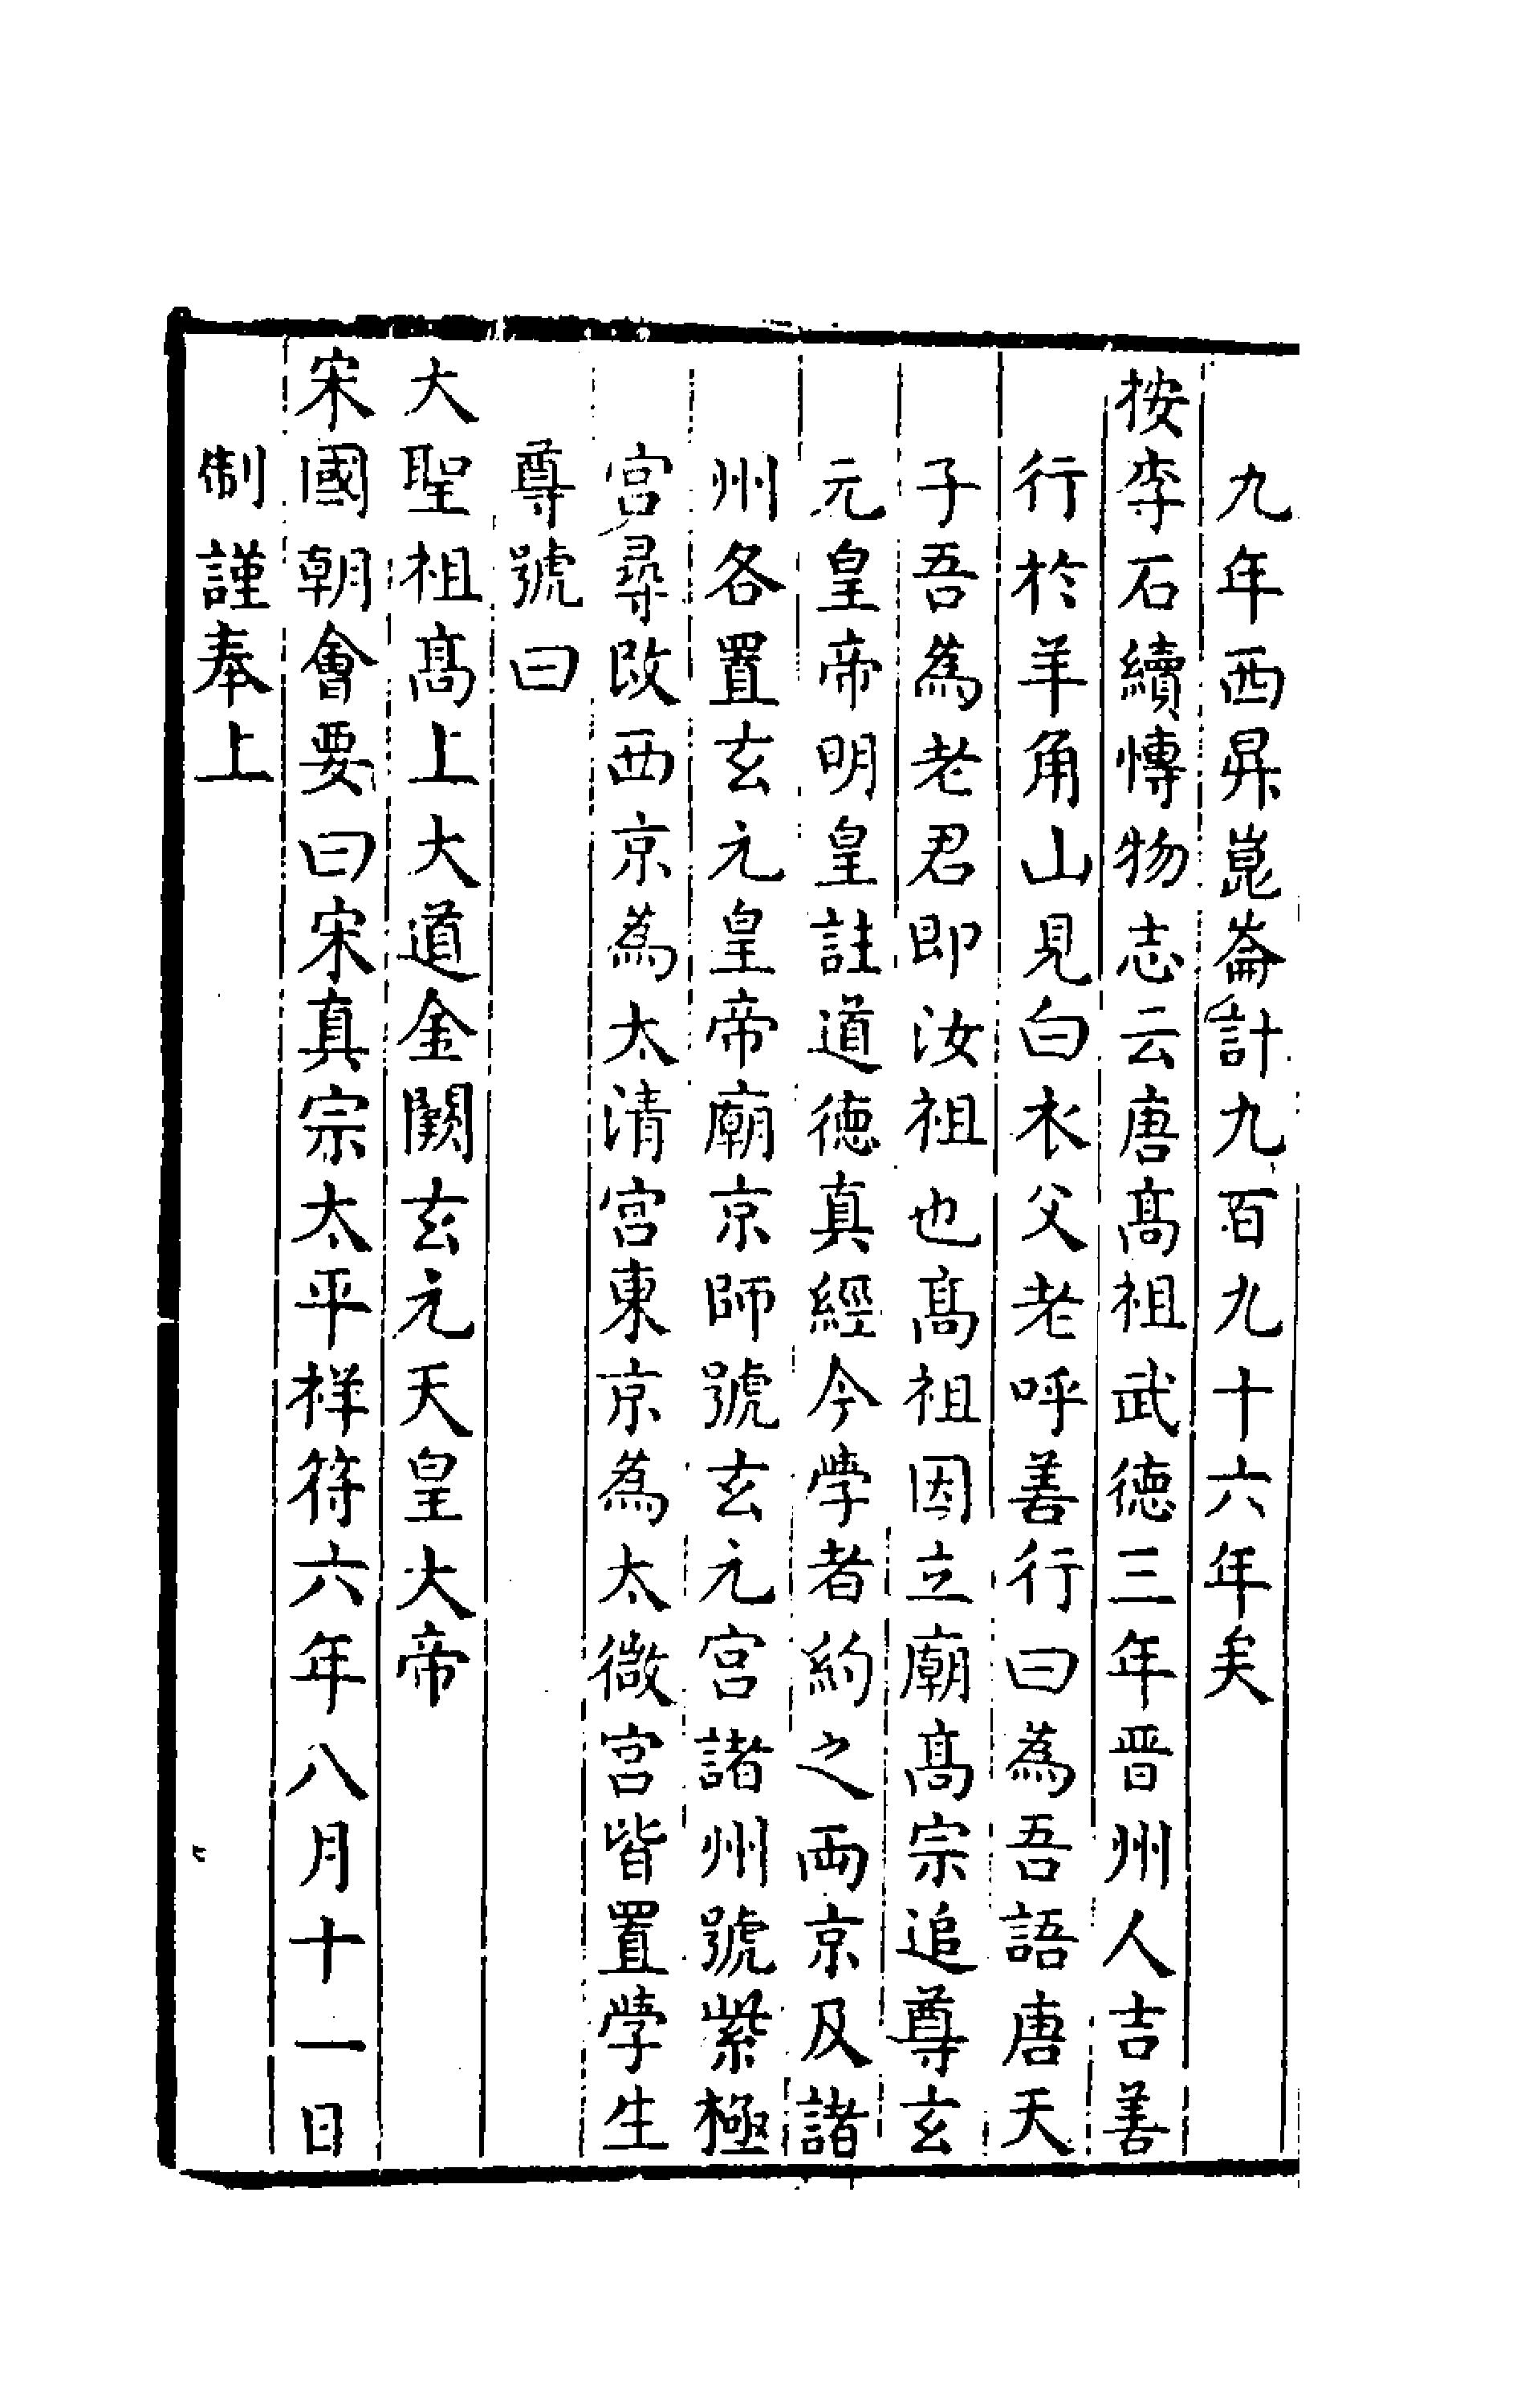 九年西昇崑崙計九百九十六年矣
按李石續慱物志云唐髙祖武徳三年晋州人吉善
行於羊角山見白衣父老呼善行曰為吾語唐天
子吾為老君即汝祖也髙祖因立廟髙宗追尊玄
元皇帝明皇註道徳真經令學者約之兩京及諸
州各置玄元皇帝廟京師號玄元宫諸州號紫極
宫尋改西京為太清宫東京為太微宫皆置學生
尊號曰
大聖祖髙上大道金闕玄元天皇大帝
宋國朝會要曰宋真宗太平祥符六年八月十一日
制謹奉上